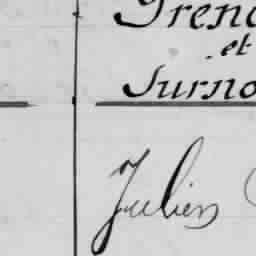 Preno
et
Surno
Julien